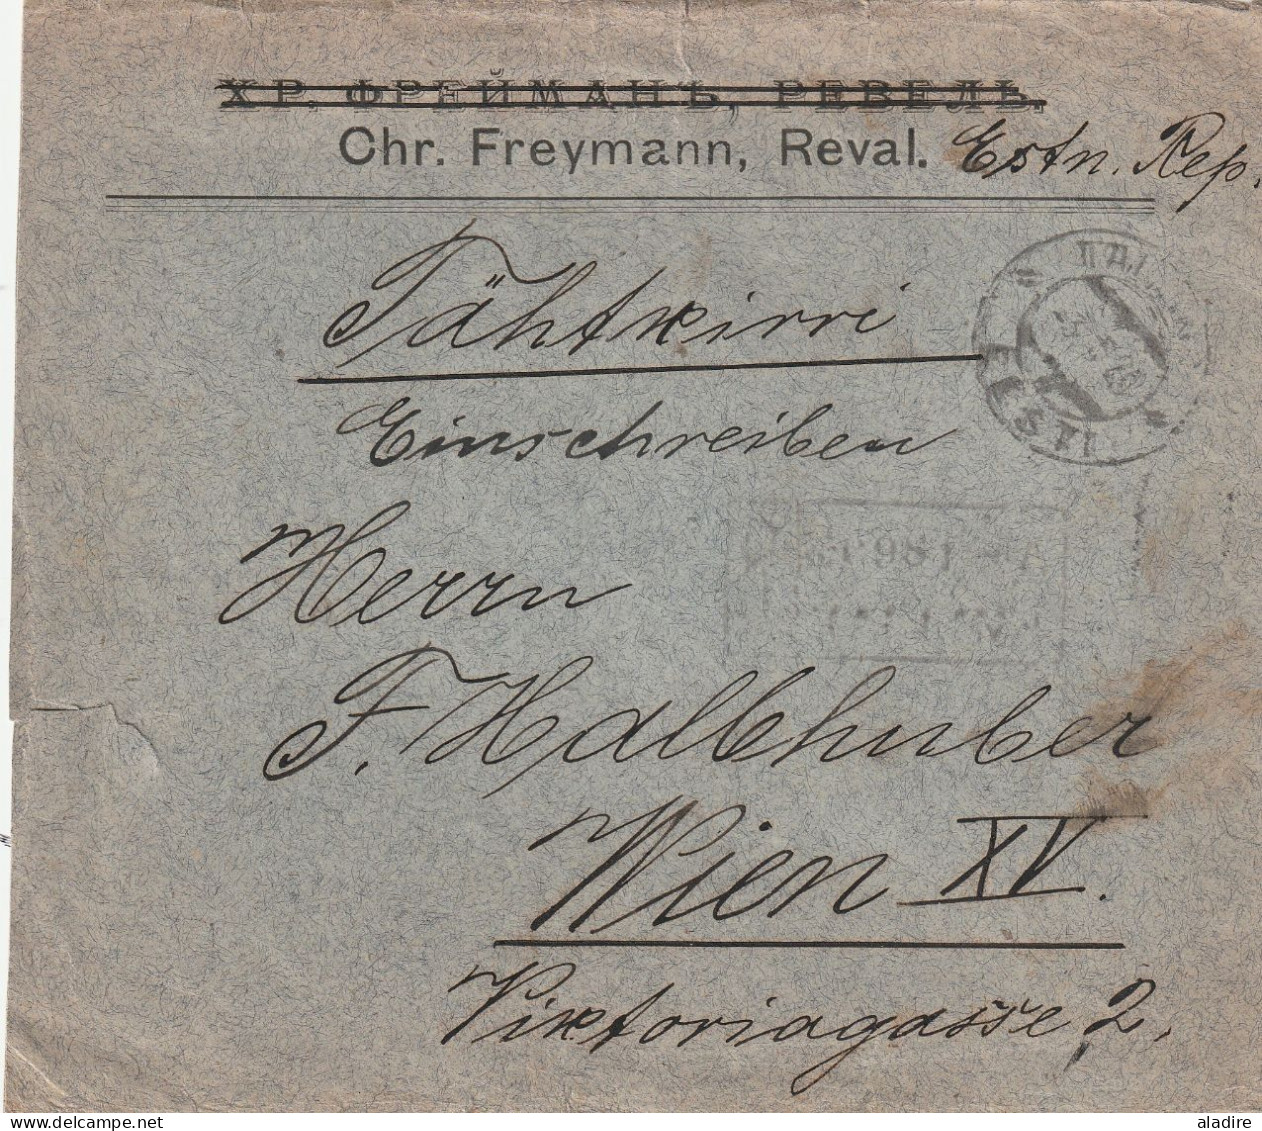 ХР. ФРЕЙМАНЪ, РЕВЕЛЬ.
Chr. Freymann, Reval. Estn. Rep.
Tähtkirri
Einschreiben
Herrn
F. Halbhuber
Wien XV.
Viktoriagasse 2.
EESTI
aladire